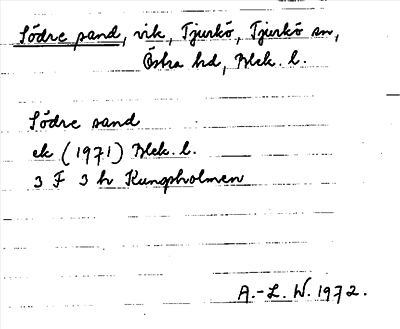 Södre sand, vik, Tjurkö, Tjurkö sn,
Östra hd, Blek. l.
Södre sand
ek (1971) Blek. l.
3 F 3 h Kungsholmen
A.-L. W. 1972.